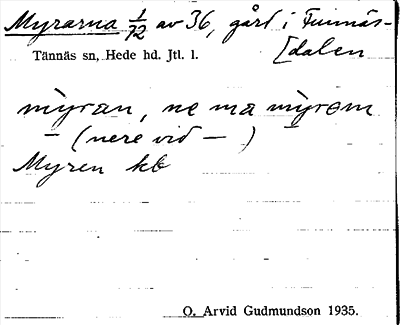 Myrarna 1/72 av 36, gård i Funnäs-
[dalen
Tännäs sn, Hede hd. Jtl. l.
mỳran, ne ma mỳrom
— (nere vid — )
Myren kb
O. Arvid Gudmundson 1935.